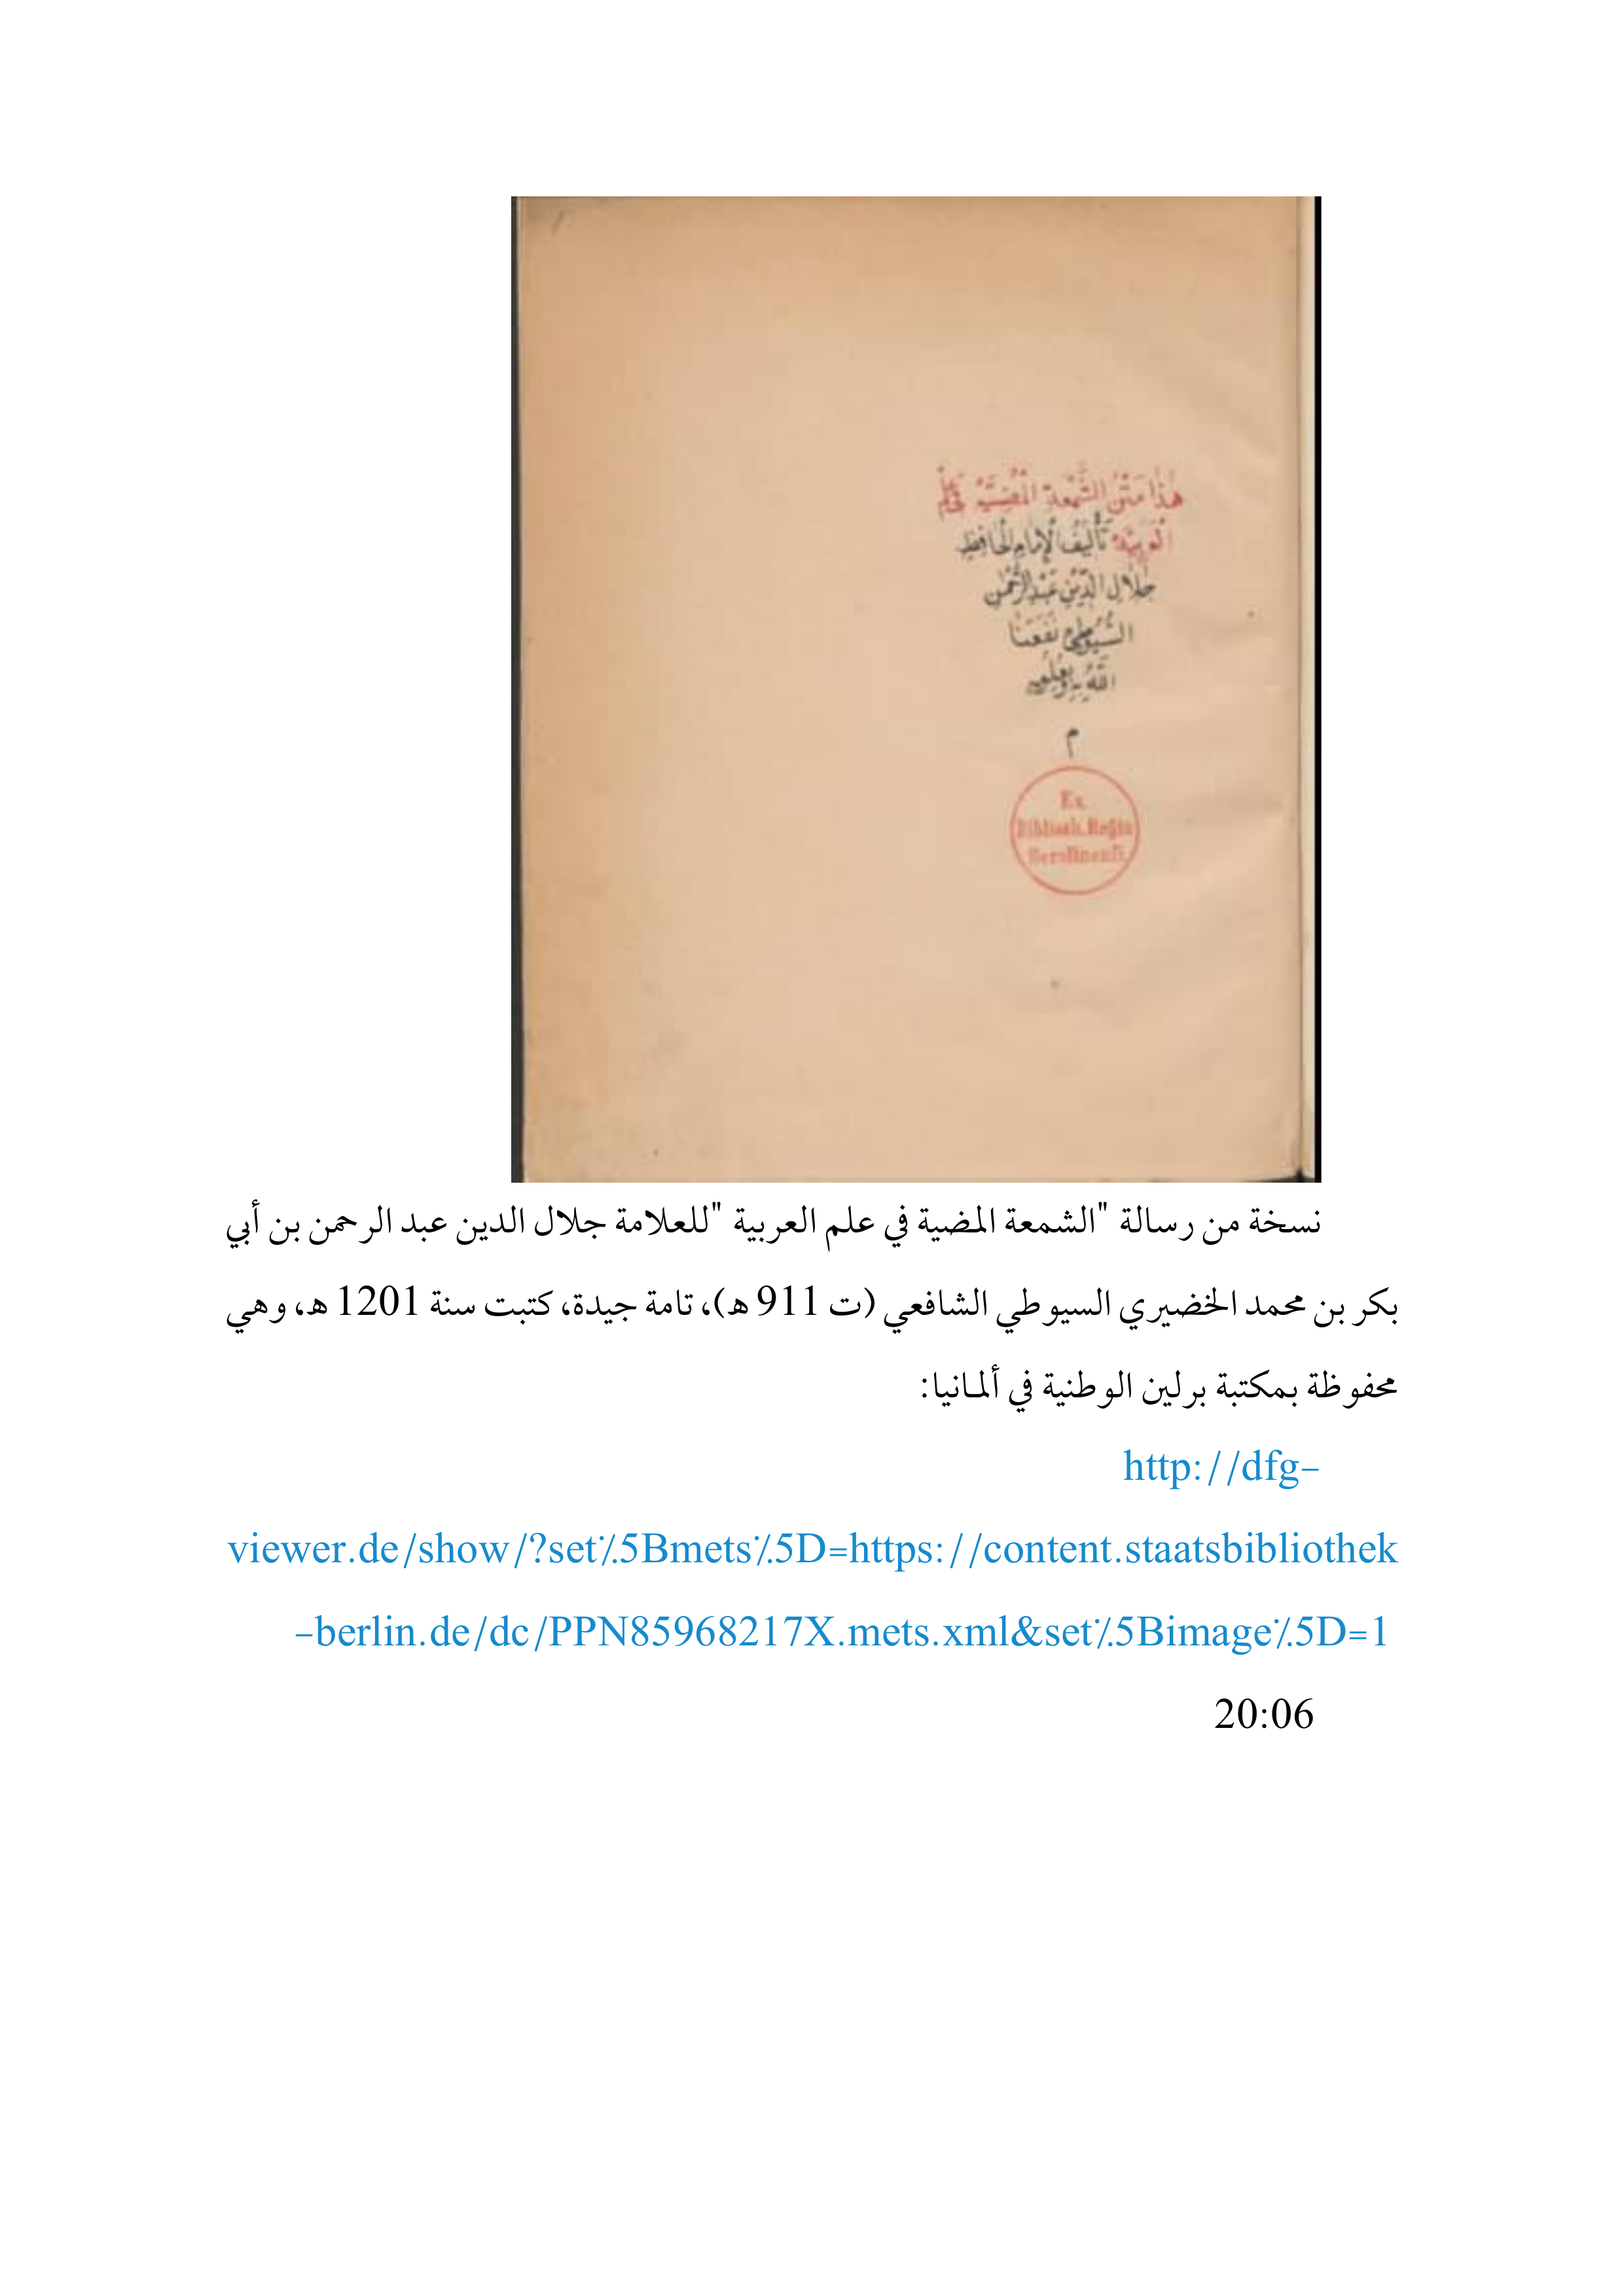 هٰذَا مَتْنُ الشَّمْعَةِ الْمُضِيَّةِ فِي عِلْمِ
الْعَرَبِيَّةِ تَأْلِيفُ الْإِمَامِ الْحَافِظِ
جَلَالِ الدِّينِ عَبْدِ الرَّحْمٰنِ
السُّيُوطِيِّ نَفَعَنَا
اللّٰهُ بِهِ وَبِعُلُومِهِ
م
Ex
Biblioth. Regia
Berolinensi.
نسخة من رسالة "الشمعة المضية في علم العربية "للعلامة جلال الدين عبد الرحمن بن أبي
بكر بن محمد الخضيري السيوطي الشافعي (ت 911 ه)، تامة جيدة، كتبت سنة 1201 ه، وهي
محفوظة بمكتبة برلين الوطنية في ألمانيا:
http://dfg-
viewer.de/show/?set%5Bmets%5D=https://content.staatsbibliothek
-berlin.de/dc/PPN85968217X.mets.xml&set%5Bimage%5D=1
20:06